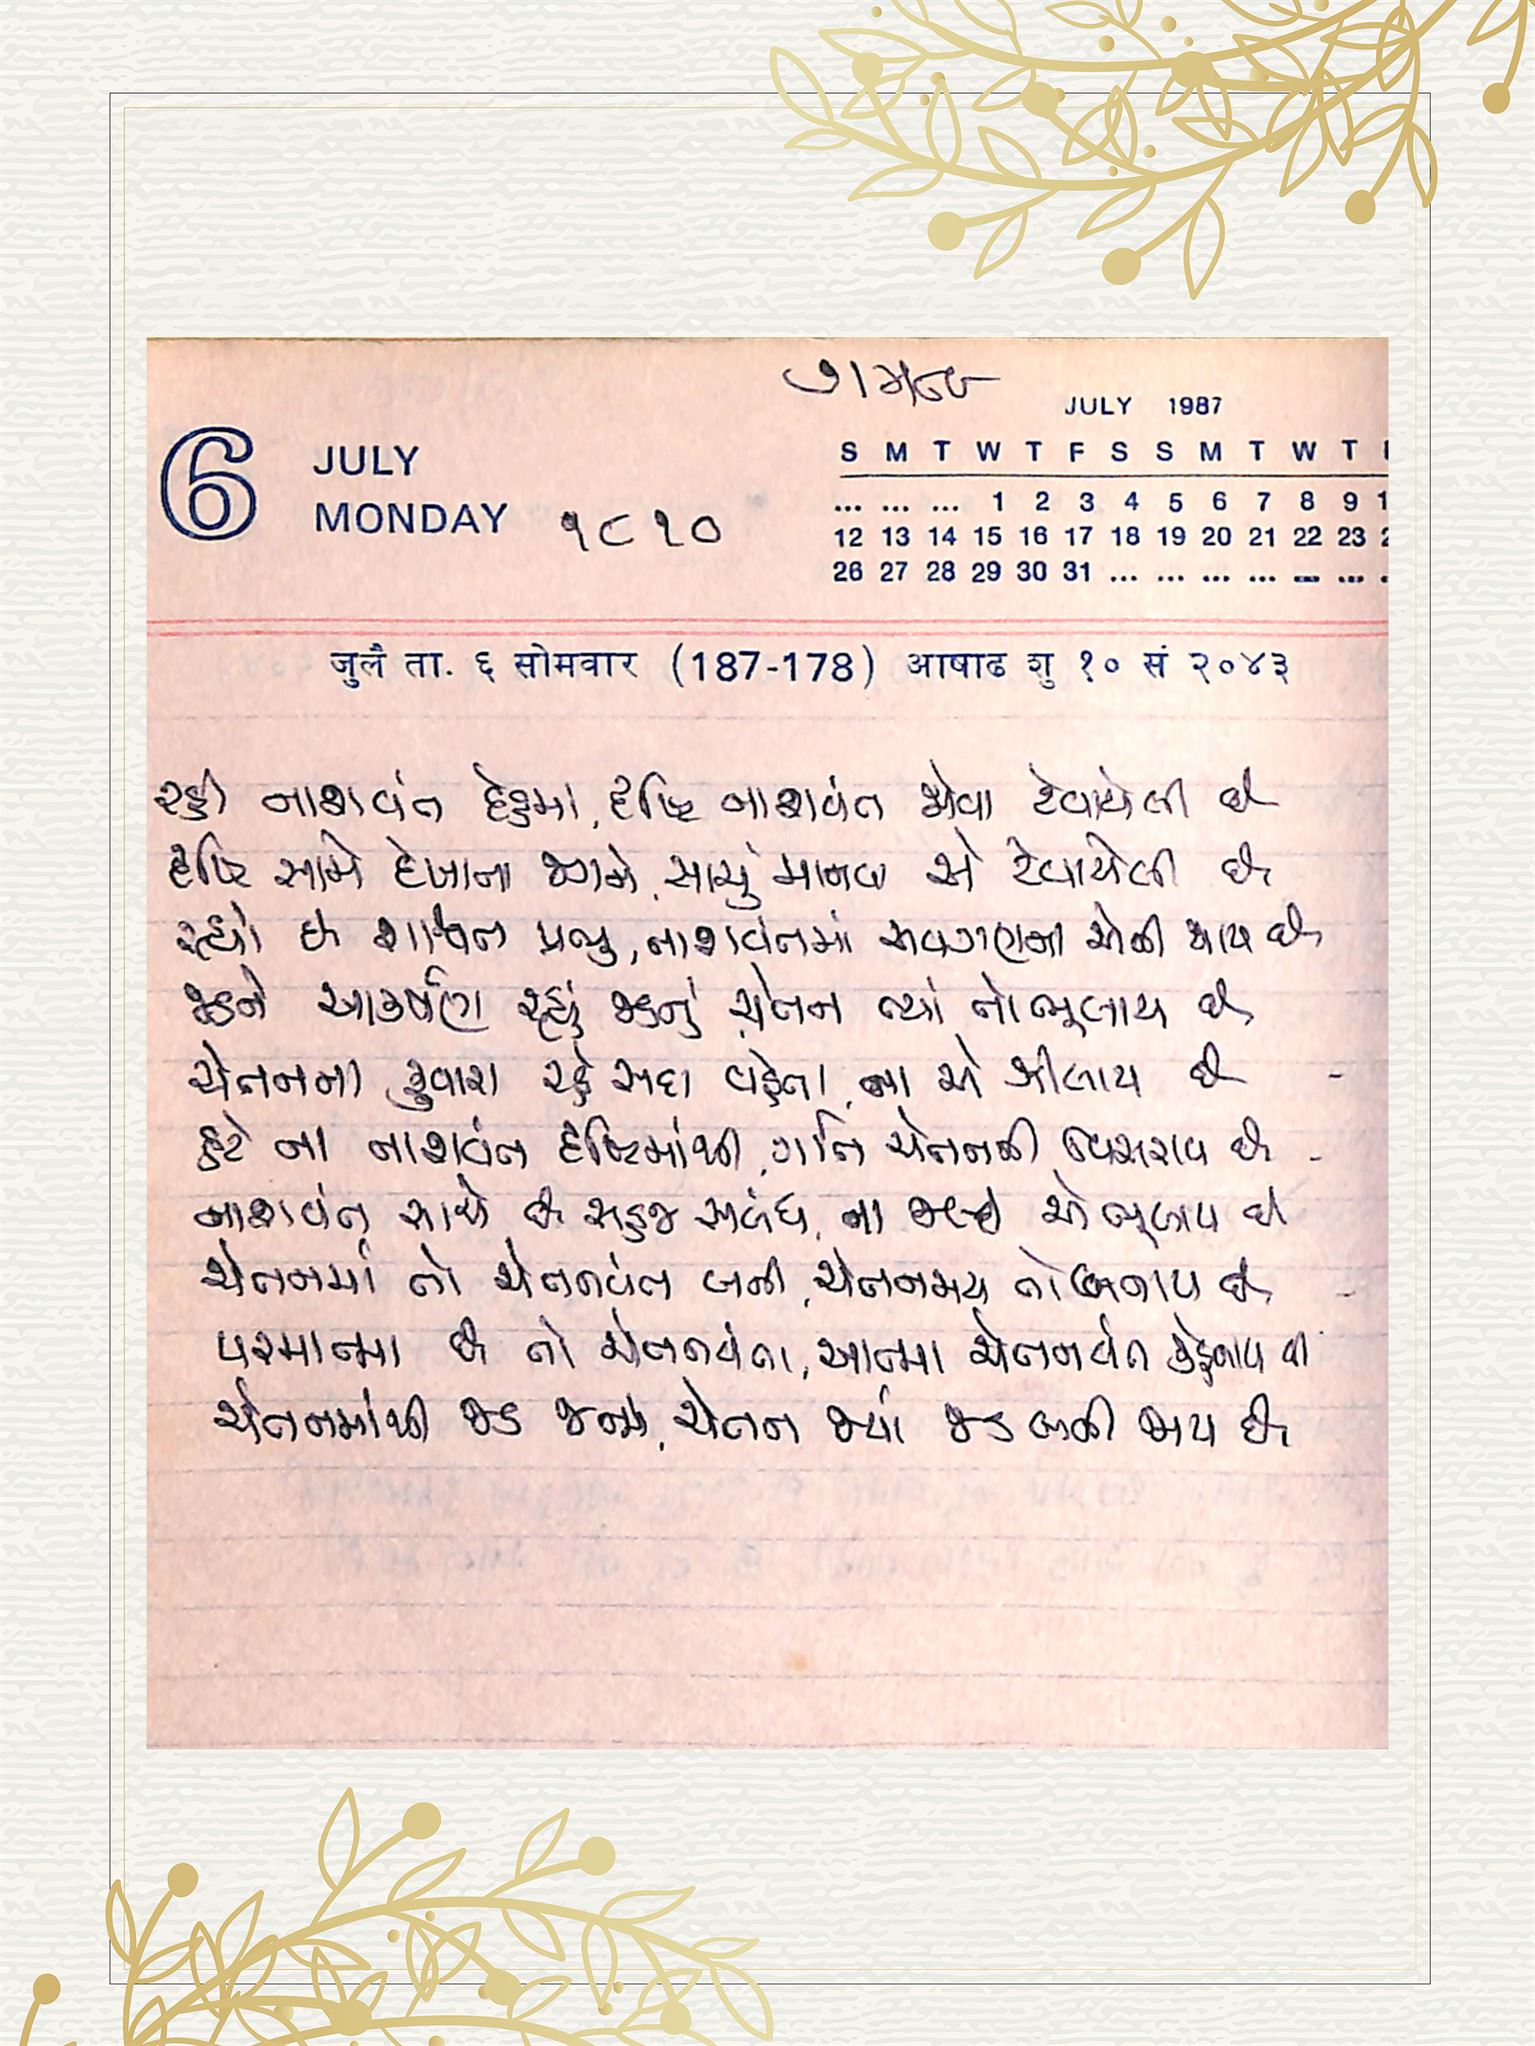 JULY 1987
6 JULY
MONDAY ૧૮૧૦
S M T W T F S S M T W T
... ... ... 1 2 3 4 5 6 7 8 9
12 13 14 15 16 17 18 19 20 21 22 23
26 27 28 29 30 31 ... ... ... ... ... ...
जुलै ता. ६ सोमवार (187-178) आषाढ शु १० सं २०४३
રહી નાશવંત દેહમાં, દૃષ્ટિ નાશવંત જોવા ટેવાયેલી છે
દૃષ્ટિ સામે દેખાતા જગને, સાચું માનવા એ ટેવાયેલી છે
રહ્યો છે શાશ્વત પ્રભુ, નાશવંતમાં અવગણના એની થાય છે
જડને આકર્ષણ રહ્યું જડનું ચેતન ત્યાં તો ભૂલાય છે
ચેતનની રહે સદા વહેતા, ના એ ઝીલાય છે
હટે ના નાશવંત દૃષ્ટિમાંથી, ગતિ ચેતનની વિસરાય છે
નાશવંત સાથે છે સહુજ સબંધ, ના એ ભૂલાય છે
ચેતનમાં તો ચેતનવંત બની, ચેતનમય તો બનાય છે
પરમાત્મા છે તો ચેતનવંતા, આત્મા ચેતનવંત કહેવાય છે
ચેતનમાંથી જડ જન્મે, ચેતન જ્યાં જડ બની જાય છે